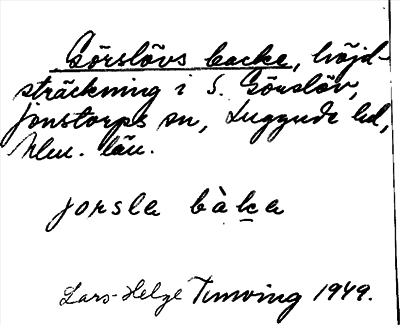 Görslövs backe, höjd-
sträckning i S. Görslöv,
Jonstorps sn, Luggude hd,
Mlm. län.
jorsla bàka
Lars-Helge Tunving 1949.